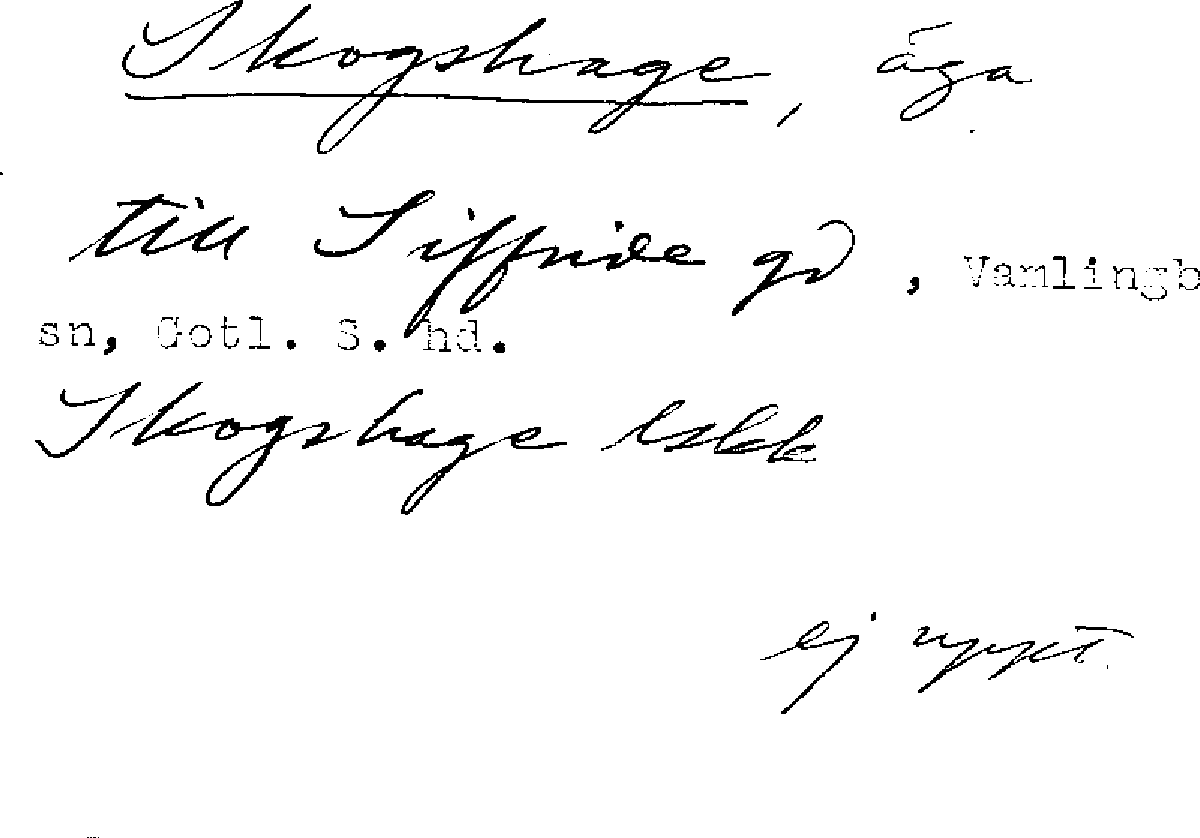 Skogshage, äga
till Siffride gd, Vamlingb
sn, Gotl. S. hd.
Skogshage lskk
ej uppt.